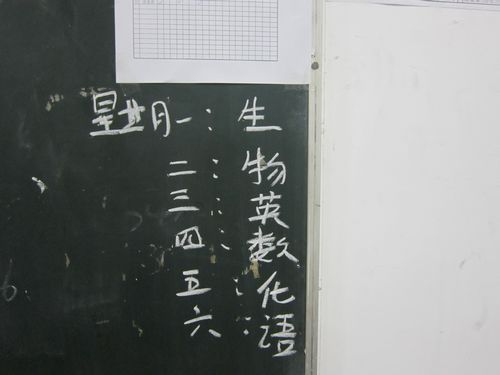 星期一：生
二：物
三：英
四：数
五：化
六：语